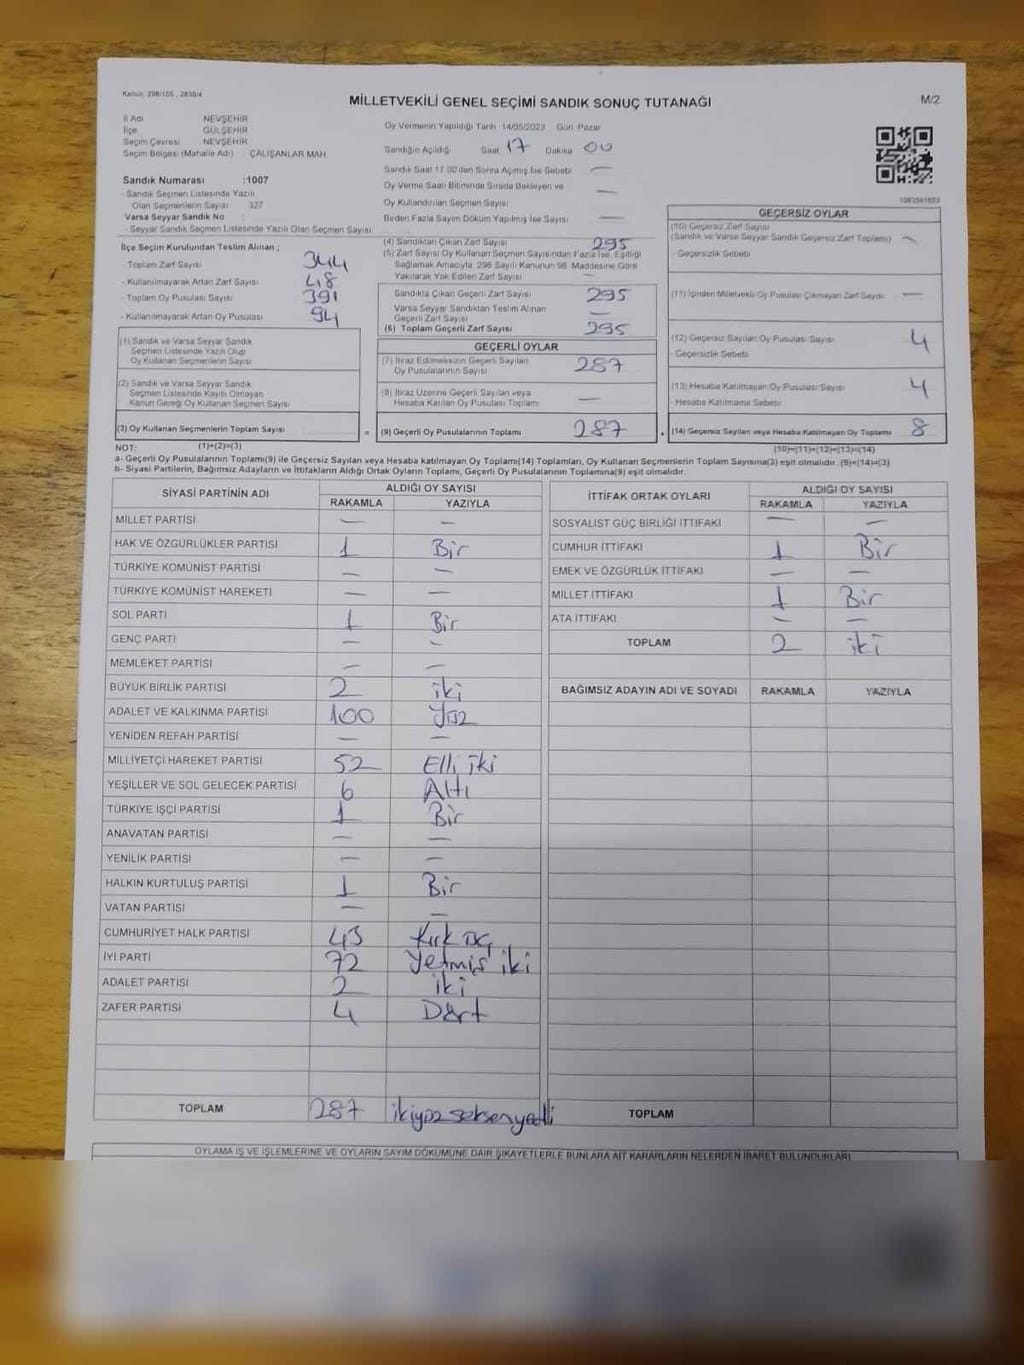 Kanun, 298/105 , 2839/4
MİLLETVEKİLİ GENEL SEÇİMİ SANDIK SONUÇ TUTANAĞI
M/2
İl Adı NEVŞEHİR
İlçe GÜLŞEHİR
Seçim Çevresi NEVŞEHİR
Seçim Bölgesi (Mahalle Adı) ÇALIŞANLAR MAH.
Sandık Numarası :1007
- Sandık Seçmen Listesinde Yazılı
Olan Seçmenlerin Sayısı 327
Varsa Seyyar Sandık No :
- Seyyar Sandık Seçmen Listesinde Yazılı Olan Seçmen Sayısı
Oy Vermenin Yapıldığı Tarih 14/05/2023 Gün Pazar
Sandığın Açıldığı Saat 17 Dakika 00
Sandık Saat 17.00'den Sonra Açılmış İse Sebebi —
Oy Verme Saati Bitiminde Sırada Bekleyen ve
Oy Kullandırılan Seçmen Sayısı —
Birden Fazla Sayım Döküm Yapılmış İse Sayısı —
İlçe Seçim Kurulundan Teslim Alınan ;
- Toplam Zarf Sayısı 344
- Kullanılmayarak Artan Zarf Sayısı 48
- Toplam Oy Pusulası Sayısı 391
- Kullanılmayarak Artan Oy Pusulası 94
(1) Sandık ve Varsa Seyyar Sandık
Seçmen Listesinde Yazılı Olup
Oy Kullanan Seçmenlerin Sayısı
(2) Sandık ve Varsa Seyyar Sandık
Seçmen Listesinde Kayıtlı Olmayan
Kanun Gereği Oy Kullanan Seçmen Sayısı
(3) Oy Kullanan Seçmenlerin Toplam Sayısı
(4) Sandıktan Çıkan Zarf Sayısı 295
(5) Zarf Sayısı Oy Kullanan Seçmen Sayısından Fazla İse, Eşitliği
Sağlamak Amacıyla 298 Sayılı Kanunun 98. Maddesine Göre
Yakılarak Yok Edilen Zarf Sayısı —
Sandıkta Çıkan Geçerli Zarf Sayısı 295
Varsa Seyyar Sandıktan Teslim Alınan
Geçerli Zarf Sayısı —
(6) Toplam Geçerli Zarf Sayısı 295
GEÇERLİ OYLAR
(7) İtiraz Edilmeksizin Geçerli Sayılan
Oy Pusulalarının Sayısı 287
(8) İtiraz Üzerine Geçerli Sayılan veya
Hesaba Katılan Oy Pusulası Toplamı —
= (9) Geçerli Oy Pusulalarının Toplamı 287 +
1083591603
GEÇERSİZ OYLAR
(10) Geçersiz Zarf Sayısı
(Sandık ve Varsa Seyyar Sandık Geçersiz Zarf Toplamı) —
- Geçersizlik Sebebi
(11) İçinden Milletvekili Oy Pusulası Çıkmayan Zarf Sayısı —
(12) Geçersiz Sayılan Oy Pusulası Sayısı 4
- Geçersizlik Sebebi
(13) Hesaba Katılmayan Oy Pusulası Sayısı 4
- Hesaba Katılmama Sebebi
(14) Geçersiz Sayılan veya Hesaba Katılmayan Oy Toplamı 8
NOT: (1)+(2)=(3) (10)+(11)+(12)+(13)=(14)
a- Geçerli Oy Pusulaların Toplamı(9) ile Geçersiz Sayılan veya Hesaba katılmayan Oy Toplamı(14) Toplamları, Oy Kullanan Seçmenlerin Toplam Sayısına(3) eşit olmalıdır. (9)+(14)=(3)
b- Siyasi Partilerin, Bağımsız Adayların ve İttifakların Aldığı Ortak Oyların Toplamı, Geçerli Oy Pusulalarının Toplamına(9) eşit olmalıdır.
SİYASİ PARTİNİN ADI ALDIĞI OY SAYISI
RAKAMLA YAZIYLA
MİLLET PARTİSİ — —
HAK VE ÖZGÜRLÜKLER PARTİSİ 1 Bir
TÜRKİYE KOMÜNİST PARTİSİ — —
TÜRKİYE KOMÜNİST HAREKETİ — —
SOL PARTİ 1 Bir
GENÇ PARTİ — —
MEMLEKET PARTİSİ — —
BÜYÜK BİRLİK PARTİSİ 2 iki
ADALET VE KALKINMA PARTİSİ 100 Yüz
YENİDEN REFAH PARTİSİ — —
MİLLİYETÇİ HAREKET PARTİSİ 52 Elli iki
YEŞİLLER VE SOL GELECEK PARTİSİ 6 Altı
TÜRKİYE İŞÇİ PARTİSİ 1 Bir
ANAVATAN PARTİSİ — —
YENİLİK PARTİSİ — —
HALKIN KURTULUŞ PARTİSİ 1 Bir
VATAN PARTİSİ — —
CUMHURİYET HALK PARTİSİ 43 Kırk üç
İYİ PARTİ 72 Yetmiş iki
ADALET PARTİSİ 2 iki
ZAFER PARTİSİ 4 Dört
TOPLAM 287 ikiyüz seksenyedi
İTTİFAK ORTAK OYLARI ALDIĞI OY SAYISI
RAKAMLA YAZIYLA
SOSYALİST GÜÇ BİRLİĞİ İTTİFAKI — —
CUMHUR İTTİFAKI 1 Bir
EMEK VE ÖZGÜRLÜK İTTİFAKI — —
MİLLET İTTİFAKI 1 Bir
ATA İTTİFAKI — —
TOPLAM 2 iki
BAĞIMSIZ ADAYIN ADI VE SOYADI RAKAMLA YAZIYLA
TOPLAM
OYLAMA İŞ VE İŞLEMLERİNE VE OYLARIN SAYIM DÖKÜMÜNE DAİR ŞİKAYETLERLE BUNLARA AİT KARARLARIN NELERDEN İBARET BULUNDUKLARI